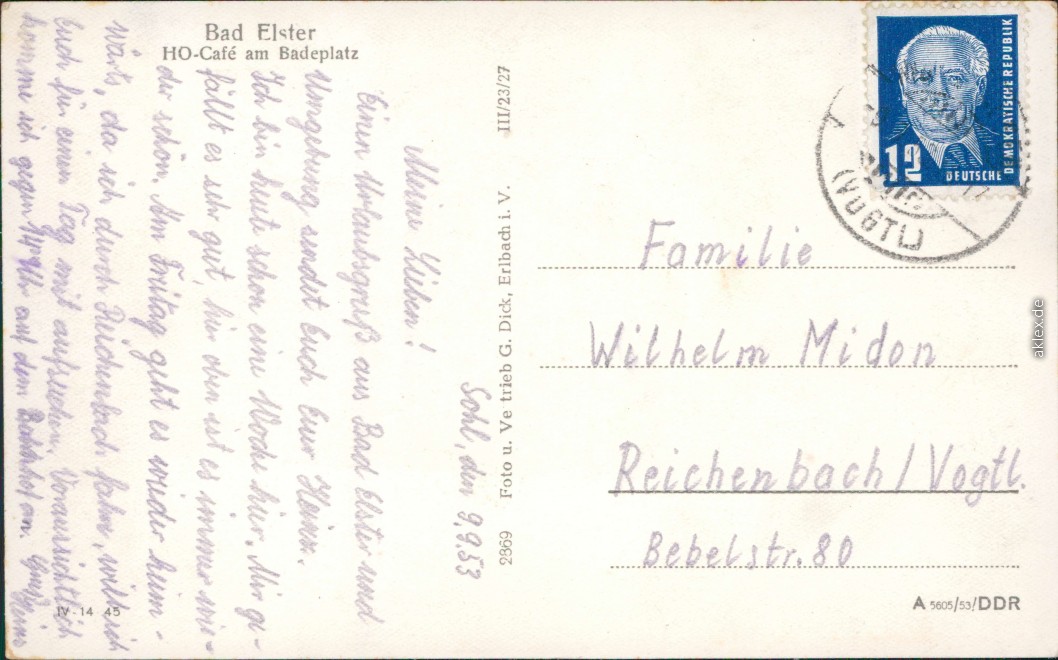 Bad Elster
HO-Café am Badeplatz
Sohl, den 9.9.53
Meine Lieben!
Einen Urlaubsgruß aus Bad Elster und
Umgebung sendet Euch Eur Heinz.
Ich bin heute schon eine Woche hier. Mir ge-
fällt es sehr gut, hier oben ist es immer wie-
der schön. Am Freitag geht es wieder heim-
wärts, da ich durch Reichenbach fahre, will ich
Euch für einen Tag mit aufsuchen. Voraussichtlich
komme ich gegen 1/4 Uhr auf dem Bahnhof an. Gruß Heinz
IV-14 45
2869 Foto u. Ve trieb G. Dick, Erlbach i. V. III/23/27
12
DEUTSCHE
DEMOKRATISCHE REPUBLIK
(VOGTL)
Familie
Wilhelm Midon
Reichenbach/Vogtl.
Bebelstr. 80
A 5605/53/DDR
aklex.de